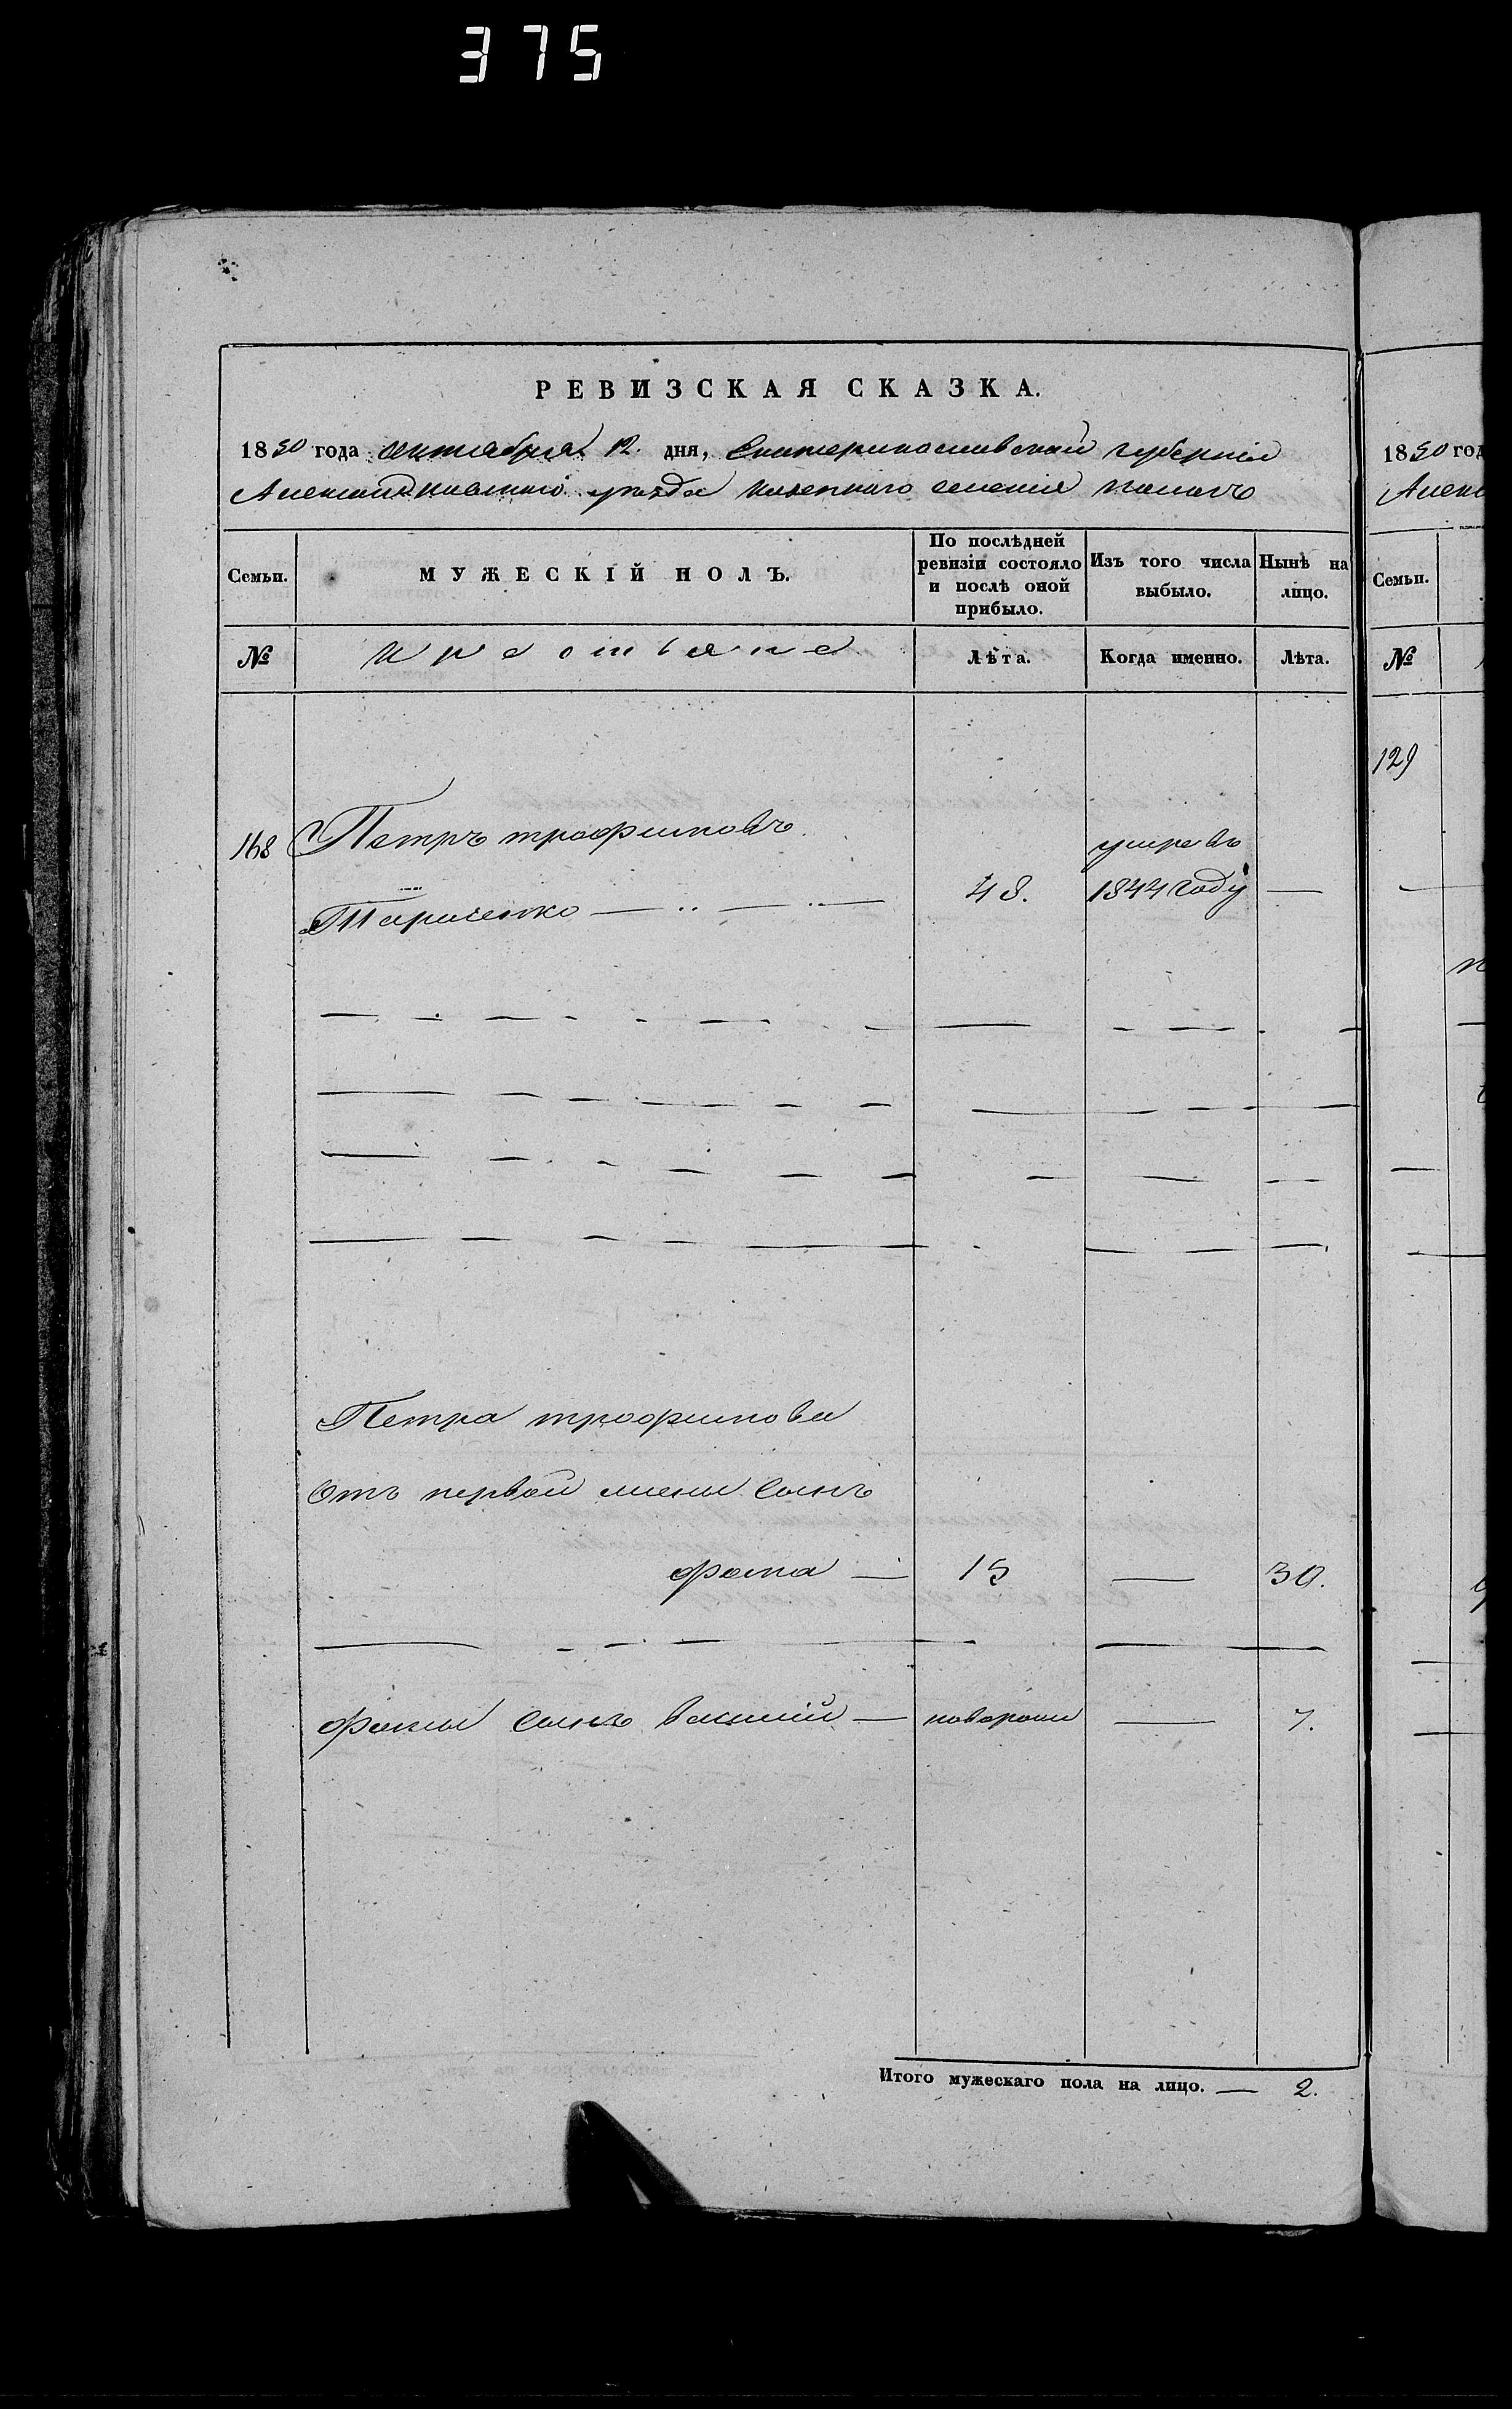 375
РЕВИЗСКАЯ СКАЗКА.
1850 года сентября 12. дня, Екатеринославской губерніи
уезда казеннаго селенія
Семьи.
МУЖЕСКІЙ ПОЛЪ.
По послѣдней ревизіи состояло и послѣ оной прибыло.
Изъ того числа выбыло.
Нынѣ на лицо.
№
крестьяне
Лѣта.
Когда именно.
Лѣта.
168 Петръ трофимовъ умре въ
Тарасенко 48. 1844 году —
Петра трофимова
Отъ первой жены сынъ
фома — 15 — 30.
фомы сынъ василій — новорожд — 7.
Итого мужескаго пола на лицо. — 2.
1850 год
Алекс
Семьи.
№
129